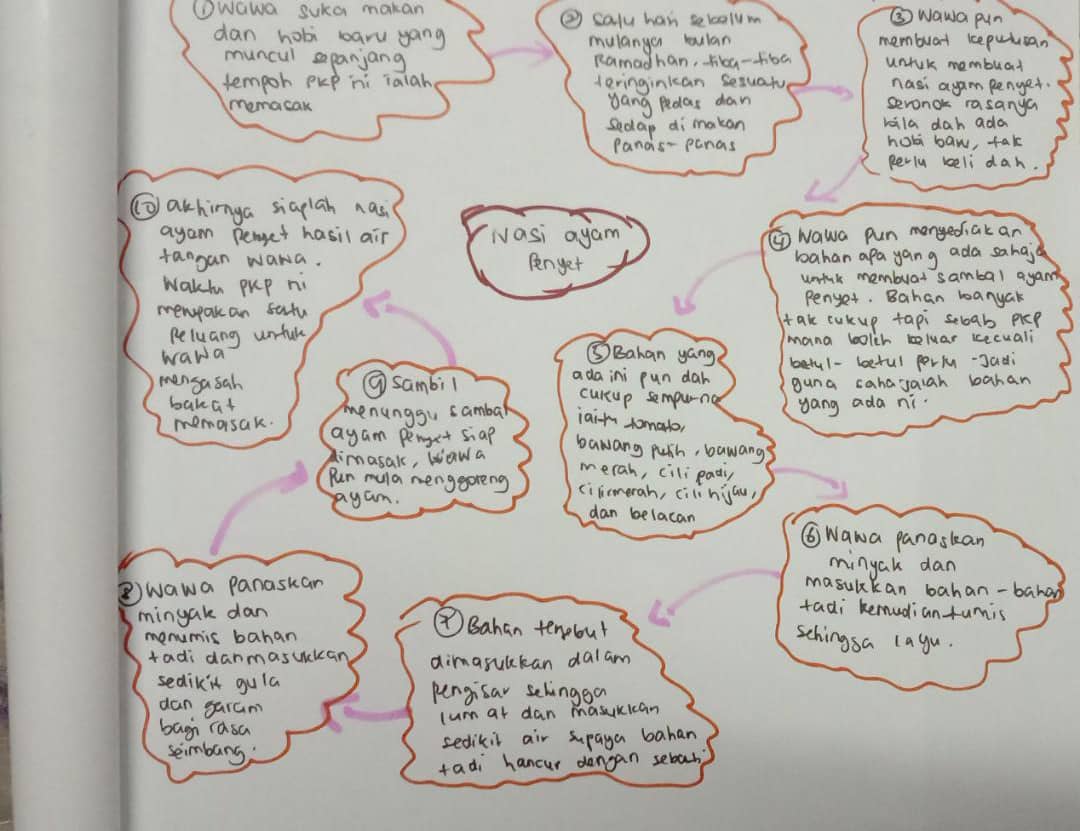 ① Wawa suka makan
dan hobi baru yang
muncul sepanjang
tempoh PKP ni ialah
memasak
② Satu hari sebelum
mulanya bulan
Ramadhan, tiba-tiba
teringinkan sesuatu
yang pedas dan
sedap di makan
panas-panas
③ Wawa pun
membuat keputusan
untuk membuat
nasi ayam penyet.
Seronok rasanya
bila dah ada
hobi baru, tak
perlu beli dah.
Nasi ayam
Penyet
④ Wawa pun menyediakan
bahan apa yang ada sahaja
untuk membuat sambal ayam
Penyet. Bahan banyak
tak cukup tapi sebab PKP
mana boleh keluar kecuali
betul-betul perlu. Jadi
guna sahajalah bahan
yang ada ni.
⑤ Bahan yang
ada ini pun dah
cukup sempurna
iaitu tomato,
bawang putih, bawang
merah, cili padi,
cili merah, cili hijau,
dan belacan
⑥ Wawa panaskan
minyak dan
masukkan bahan-bahan
tadi kemudian tumis
sehingga layu.
⑦ Bahan tersebut
dimasukkan dalam
pengisar sehingga
lumat dan masukkan
sedikit air supaya bahan
tadi hancur dengan sebati
⑧ Wawa panaskan
minyak dan
menumis bahan
tadi dan masukkan
sedikit gula
dan garam
bagi rasa
seimbang.
⑨ Sambil
menunggu sambal
ayam penyet siap
dimasak, Wawa
pun mula menggoreng
ayam.
⑩ akhirnya siaplah nasi
ayam penyet hasil air
tangan wawa.
Waktu PKP ni
merupakan satu
peluang untuk
wawa
mengasah
bakat
memasak.